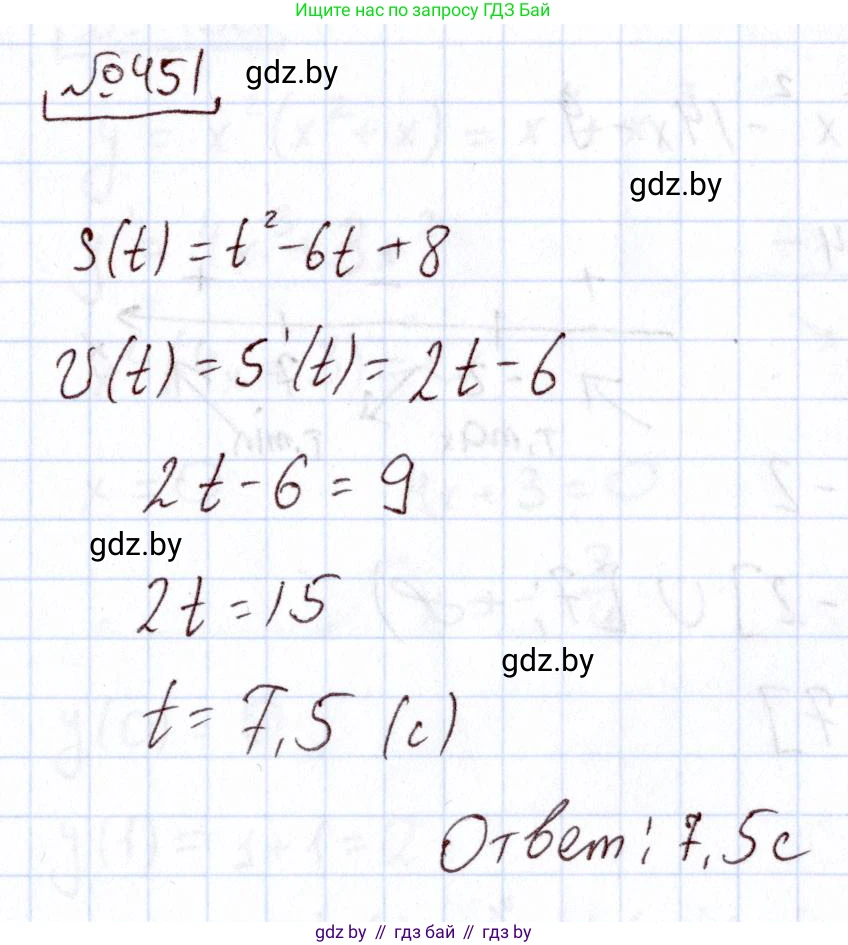 Ищите нас по запросу ГДЗ Бай
№451 gdz.by
gdz.by
S(t) = t² - 6t + 8
v(t) = S'(t) = 2t - 6
2t - 6 = 9
gdz.by
2t = 15
gdz.by
t = 7,5 (с)
Ответ: 7,5с
gdz.by // гдз бай // гдз by